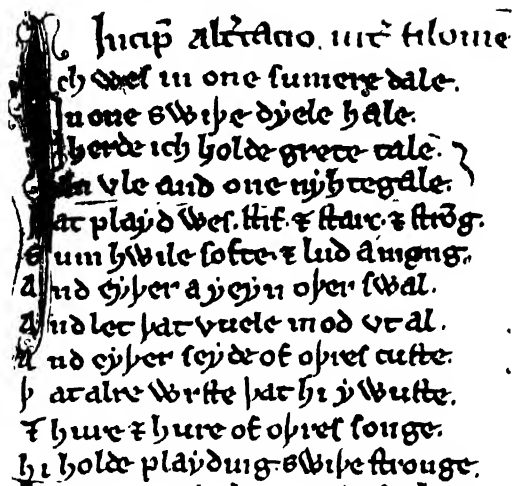 Incip̄ alt͛cacio. int͛ filome
Ich wes in one sumere dale.
In one swiþe dyele hale.
Iherde ich holde grete tale.
An vle and one nyhtegale.
Þat playd wes. stif. ⁊ starc. ⁊ strōg.
Sum hwile softe. ⁊ lud among.
And eyþer ayeyn oþer swal.
And let þat vuele mod vt al.
And eyþer seyde of oþres custe.
þat alre wrste þat hi ywuste.
⁊ hure ⁊ hure of oþres songe.
hi holde playding. swiþe stronge.